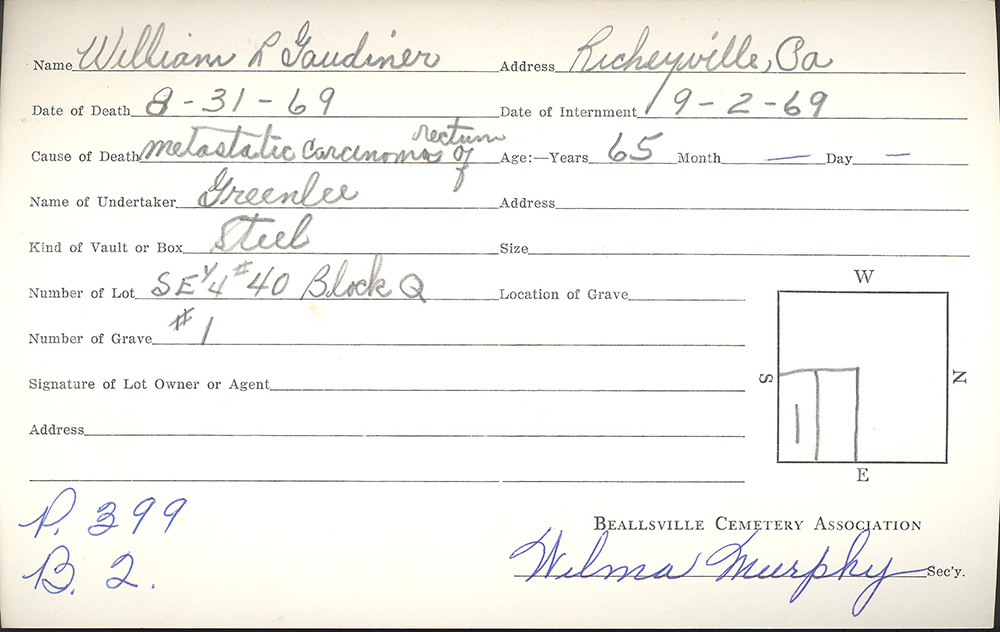 Name William R Gaudiner Address Richeyville, Pa
Date of Death 8-31-69 Date of Internment 9-2-69
Cause of Death metastatic carcinoma of rectum Age:—Years 65 Month — Day —
Name of Undertaker Greenlee Address
Kind of Vault or Box Steel Size
Number of Lot SE 1/4 #40 Block Q Location of Grave
W
Number of Grave #1
S
N
Signature of Lot Owner or Agent
Address
E
P. 399
B. 2.
BEALLSVILLE CEMETERY ASSOCIATION
Wilma Murphy Sec'y.